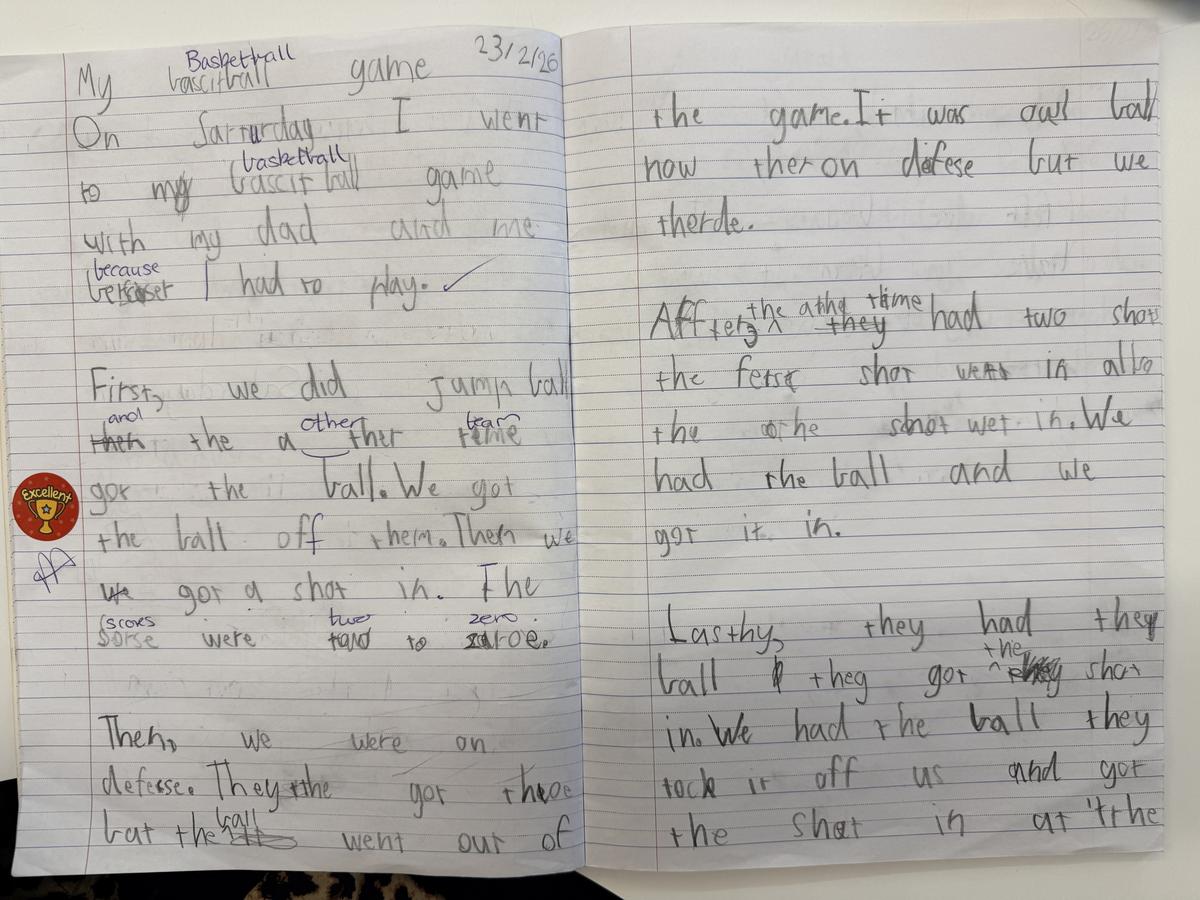 Basketball
My bascitball game 23/2/26
On Saturday I went
basketball
to my bascit ball game
with my dad and me
because
I had to play.
First, we did jump ball
and other team
then the a ther teme
got the ball. We got
Excellent
the ball off them. Then we
we got a shot in. The
scores two zero.
sorse were to zaroe.
Then, we were on
defesse. They the got
ball
bat the went out of
the game. It was owl ball
now ther on defese but we
therde.
the athe time
Aff terz ^ they had two shot
the ferst shot went in also
the othe shot wet in. We
had the ball and we
got it in.
Lasthy, they had they
the
ball they got ^ shot
in. We had the ball they
tock it off us and got
the shot in at the